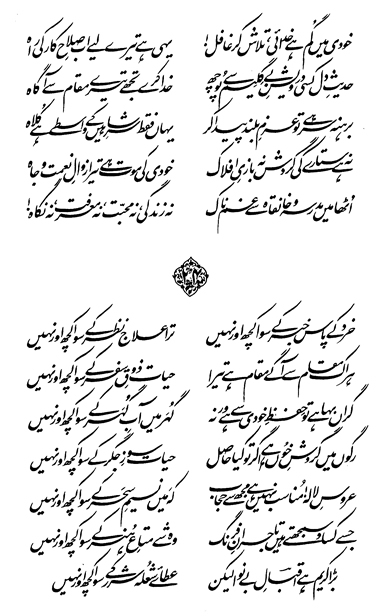 خودی میں گم ہے خدائی، تلاش کر غافل! یہی ہے تیرے لیے اب صلاحِ کار کی راہ
حدیثِ دل کسی درویشِ بے گلیم سے پوچھ خدا کرے تجھے تیرے مقام سے آگاہ
برہنہ سر ہے تو عزمِ بلند پیدا کر یہاں فقط سرِ شاہیں کے واسطے ہے کلاہ
نہ ہے ستارے کی گردش نہ بازیِ افلاک خودی کی موت ہے تیرا زوالِ نعمت و جاہ
اٹھا میں مدرسہ و خانقاہ سے غم ناک نہ زندگی، نہ محبت، نہ معرفت، نہ نگاہ!
خرد کے پاس خبر کے سوا کچھ اور نہیں ترا علاج نظر کے سوا کچھ اور نہیں
ہر اک مقام سے آگے مقام ہے تیرا حیات ذوقِ سفر کے سوا کچھ اور نہیں
گراں بہا ہے تو حفظِ خودی سے ہے ورنہ گہر میں آبِ گہر کے سوا کچھ اور نہیں
رگوں میں گردشِ خوں ہے اگر تو کیا حاصل حیات سوزِ جگر کے سوا کچھ اور نہیں
عروسِ لالہ! مناسب نہیں ہے مجھ سے حجاب کہ میں نسیمِ سحر کے سوا کچھ اور نہیں
جسے کساد سمجھتے ہیں تاجرانِ فرنگ وہ شے متاعِ ہنر کے سوا کچھ اور نہیں
بڑا کریم ہے اقبالِ بے نوا لیکن عطائے شعلہ شرر کے سوا کچھ اور نہیں